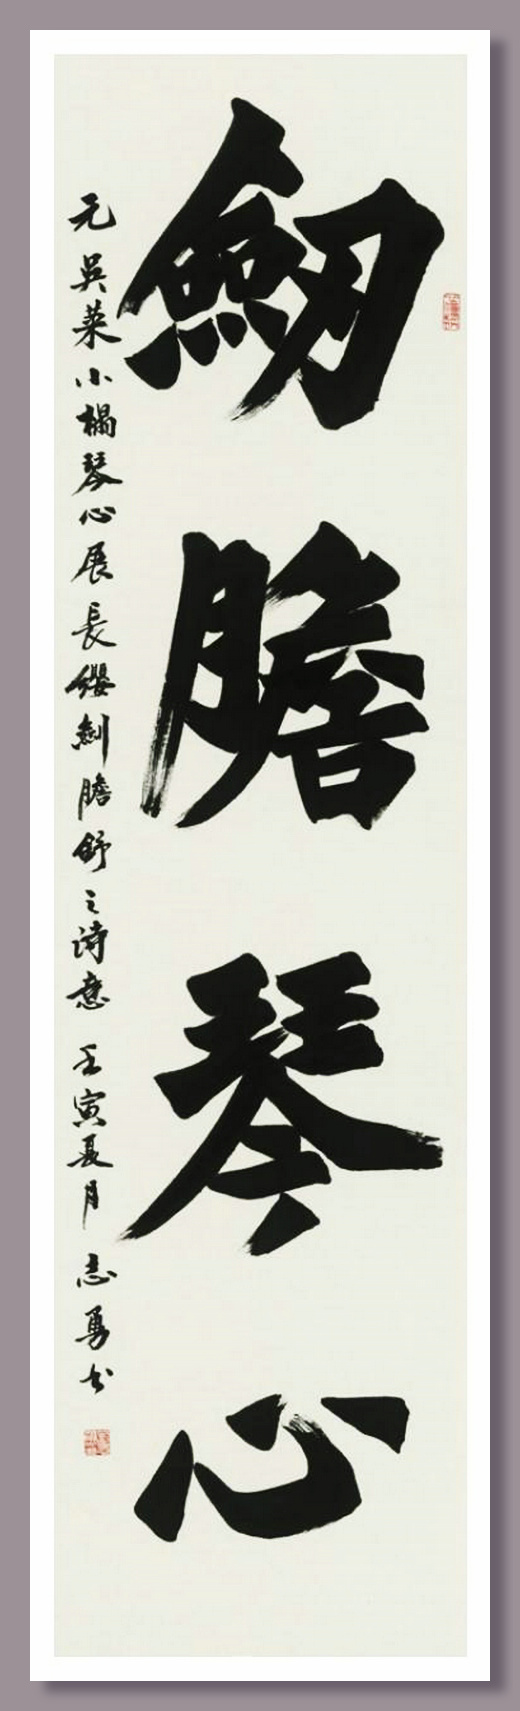 劒膽琴心
元吳萊小榻琴心展長纓劍膽舒之诗意 壬寅夏月 志勇书